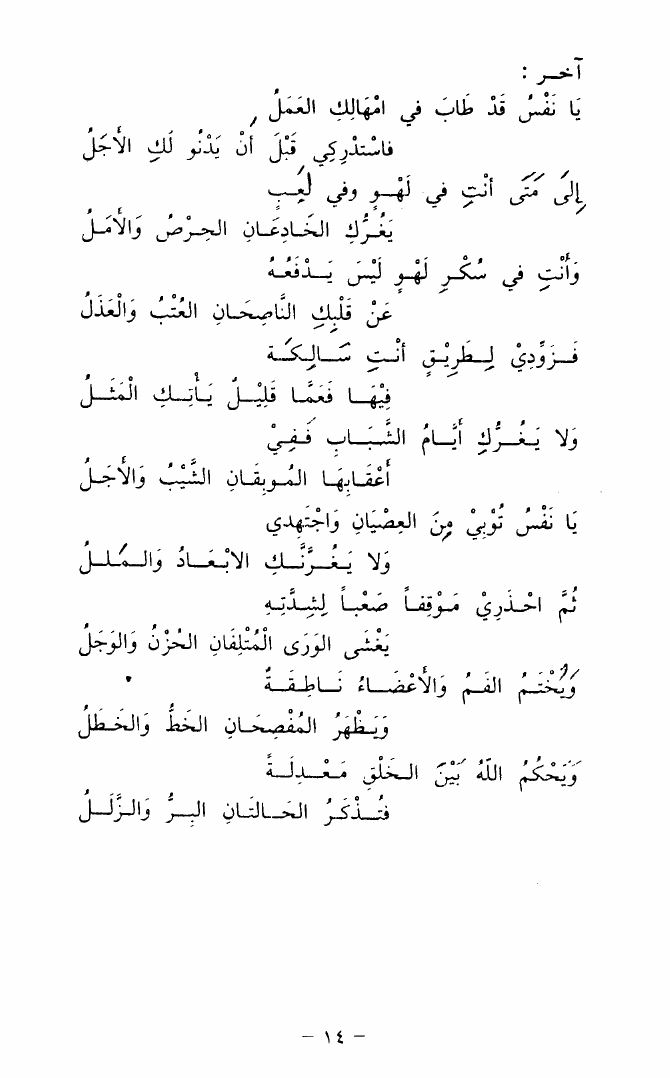 آخر :
يَا نَفْسُ قَدْ طَابَ في امْهَالِكِ العَمَلُ
فاسْتَدْرِكِي قَبْلَ أنْ يَدْنُو لَكِ الأجَلُ
إلىَ مَتَى أنْتِ في لَهْوٍ وفي لَعِبٍ
يَغُرُّكِ الخَادِعَانِ الحِرْصُ وَالأمَلُ
وَأنْتِ في سُكْرِ لَهْوٍ لَيْسَ يَدْفَعُهُ
عَنْ قَلْبِكِ النَّاصِحَانِ العُتْبُ وَالْعَذَلُ
فَزَوِّدِيْ لِطَرِيْقٍ أنْتِ سَالِكَة
فِيْهَا فَعَمَّا قَلِيْلٌ يَأتِكِ الْمَثَلُ
وَلا يَغُرُّكِ أيَّامُ الشَّبَابِ فَفِيْ
أعْقَابِهَا المُوبِقَانِ الشَّيْبُ وَالأجَلُ
يَا نَفْسُ تُوْبِيْ مِنَ العِصْيَانِ وَاجْتَهِدي
وَلا يَغُرَّنَّكِ الابْعَادُ وَالمَلَلُ
ثُمَّ احْذَرِيْ مَوْقِفاً صَعْباً لِشِدَّتِهِ
يَغْشَى الوَرَى الْمُتْلِفَانِ الحُزْنُ وَالوَجَلُ
وَيُخْتَمُ الفَمُ وَالأعْضَاءُ نَاطِقَةٌ
وَيَظْهَرُ المُفْصِحَانِ الخَطُّ وَالخَطَلُ
وَيَحْكُمُ اللهُ بَيْنَ الخَلْقِ مَعْدِلَةً
فَتُذْكَرُ الحَالتَانِ البِرُّ وَالزَّلَلُ
– ١٤ –